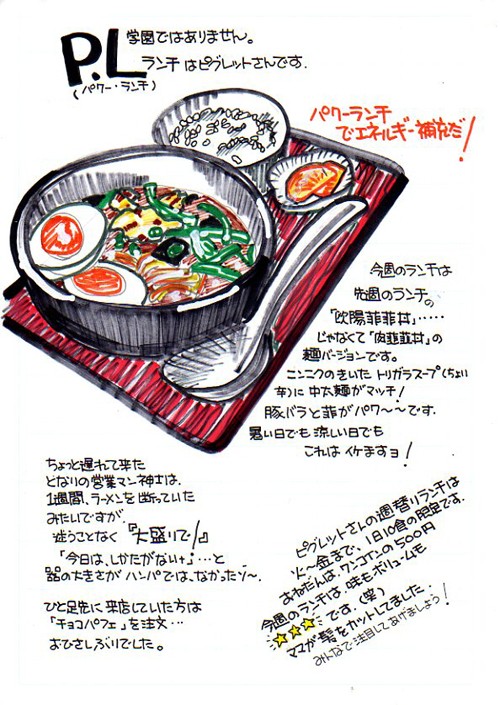 P.L
学園ではありません。
ランチはピグレットさんです.
(パワー・ランチ)
パワーランチ
でエネルギー補充だ!
今週のランチは
先週のランチの
「欧陽菲菲丼」‥‥‥
じゃなくて「肉韮韮丼」の
麺バージョンです。
ニンニクのきいた トリガラスープ(ちょい
辛)に中太麺がマッチ!
豚バラと韮がパワ〜〜です.
暑い日でも 涼しい日でも
これは イケますョ!
ちょっと遅れて来た
となりの営業マン紳士は、
1週間、ラーメンを断っていた
みたいですが、
迷うことなく『大盛りで!』
「今日は、しかたがないナ」‥‥と
器の大きさが ハンパでは、なかったソ〜.
ひと足先に 来店していた方は
「チョコパフェ」を注文‥‥
おひさしぶりでした。
ピグレットさんの週替りランチは
火〜金まで、1日10食の限定です.
おねだんは、ワンコインの500円
今週のランチは、味もボリュームも
☆☆☆です.(笑)
ママが髪をカットしてました.
みんなで注目してあげましょう!